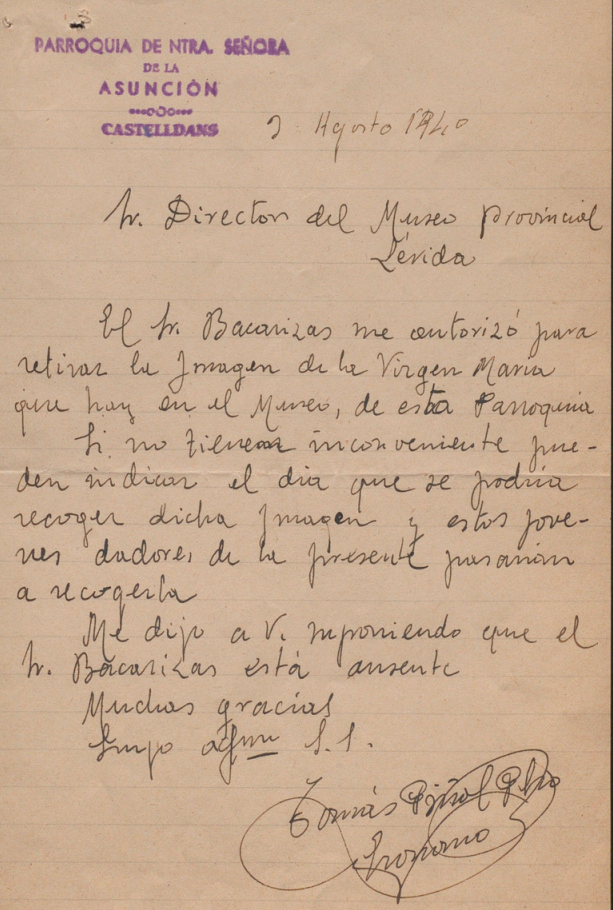 PARROQUIA DE NTRA. SEÑORA
DE LA
ASUNCIÓN
CASTELLDANS
Agosto 1940
Sr. Director del Museo Provincial
Lérida
El Sr. Bacarizas me autorizó para
retirar la Imagen de la Virgen María
que hay en el Museo, de esta Parroquia
Si no tienen inconveniente pue-
den indicar el dia que se podría
recoger dicha Imagen y estos jove-
nes dadores de la presente pasarian
a recogerla
Me dijo a V. suponiendo que el
Sr. Bacarizas está ausente
Muchas gracias
Suyo affmo S. S.
Tomás Piñol Pbro